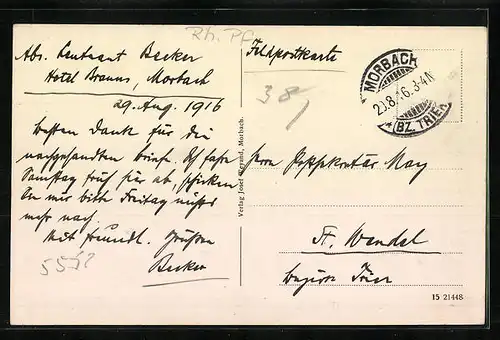 Rh. Pf.
Abs. Leutnant Becker
Hotel Brauns, Morbach
29. Aug. 1916
Besten Dank für die
nachgesandten Briefe. Ich fahre
Samstag früh für ab, schicken
Sie mir bitte Freitag nichts
mehr nach.
Mit freundl. Grüßen
Becker
Verlag Josef Morbach.
Feldpostkarte
38
MORBACH
29.8.16.3-4N
* (BZ. TRIER)
Herrn Postsekretär May
St. Wendel
Bezirk Trier
15 21448